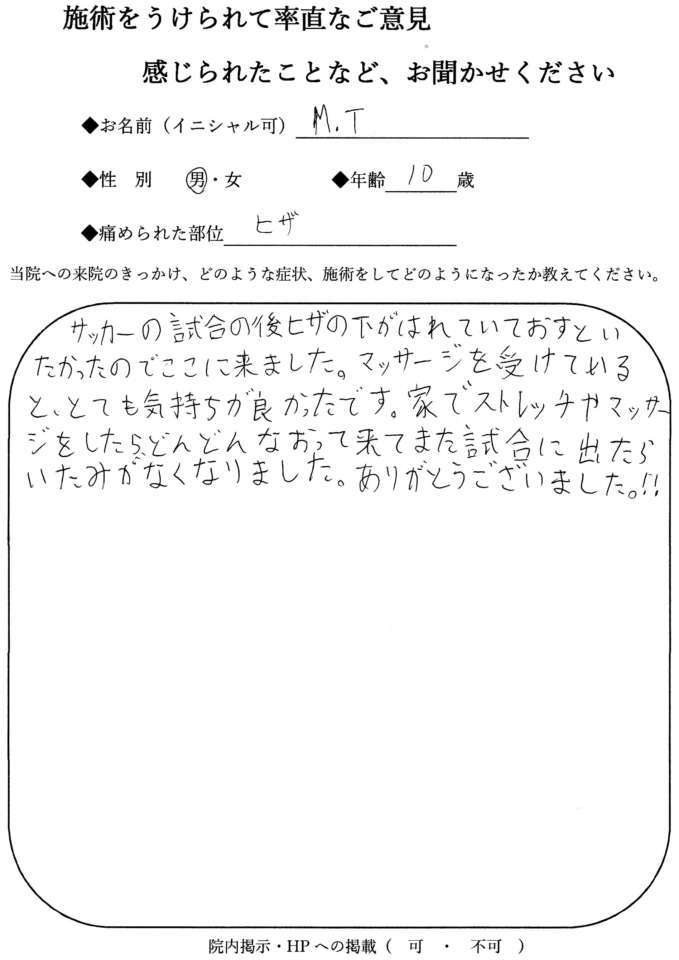 施術をうけられて率直なご意見
感じられたことなど、お聞かせください
◆お名前（イニシャル可） M.T
◆性 別 男・女 ◆年齢 10 歳
◆痛められた部位 ヒザ
当院への来院のきっかけ、どのような症状、施術をしてどのようになったか教えてください。
サッカーの試合の後ヒザの下がはれていておすとい
たかったのでここに来ました。マッサージを受けている
と、とても気持ちが良かったです。家でストレッチやマッサー
ジをしたら、どんどんなおって来てまた試合に出たら
いたみがなくなりました。ありがとうございました。!!
院内掲示・HPへの掲載（ 可 ・ 不可 ）